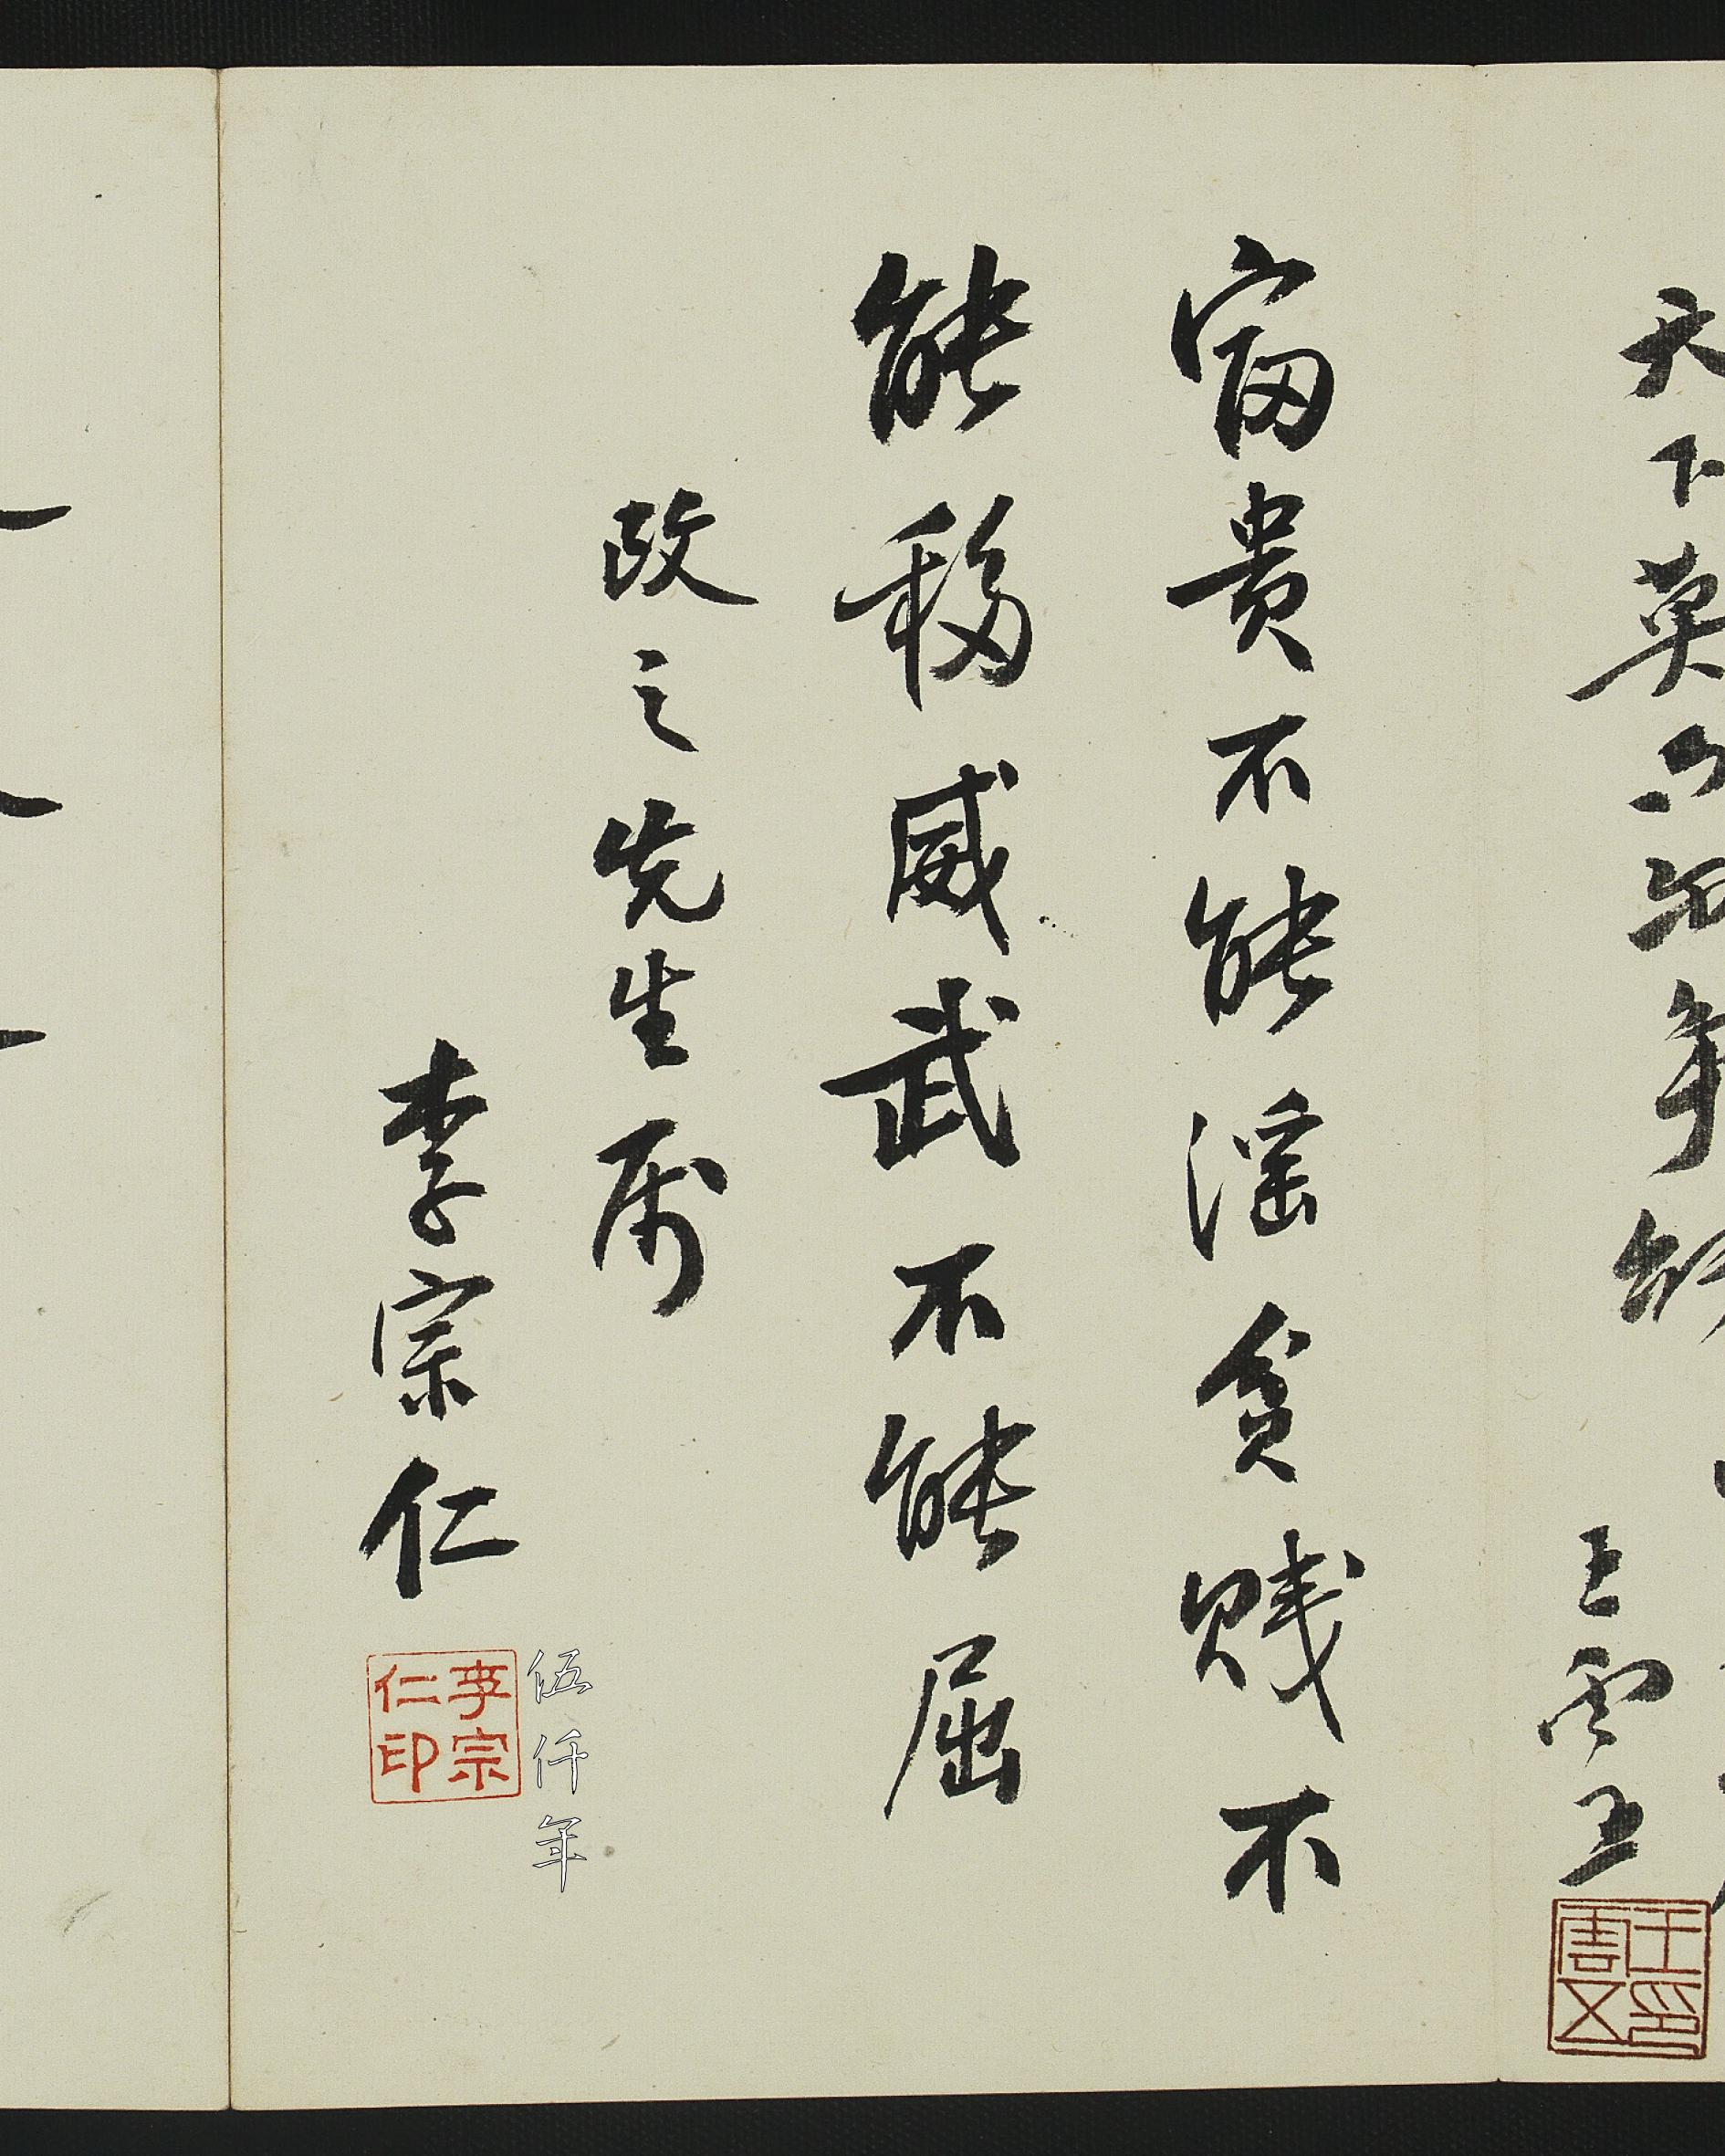 天下莫 年
王雲五
王雲五印
富贵不能淫貧賤不
能移威武不能屈
政之先生属
李宗仁
李宗仁印
伍仟年